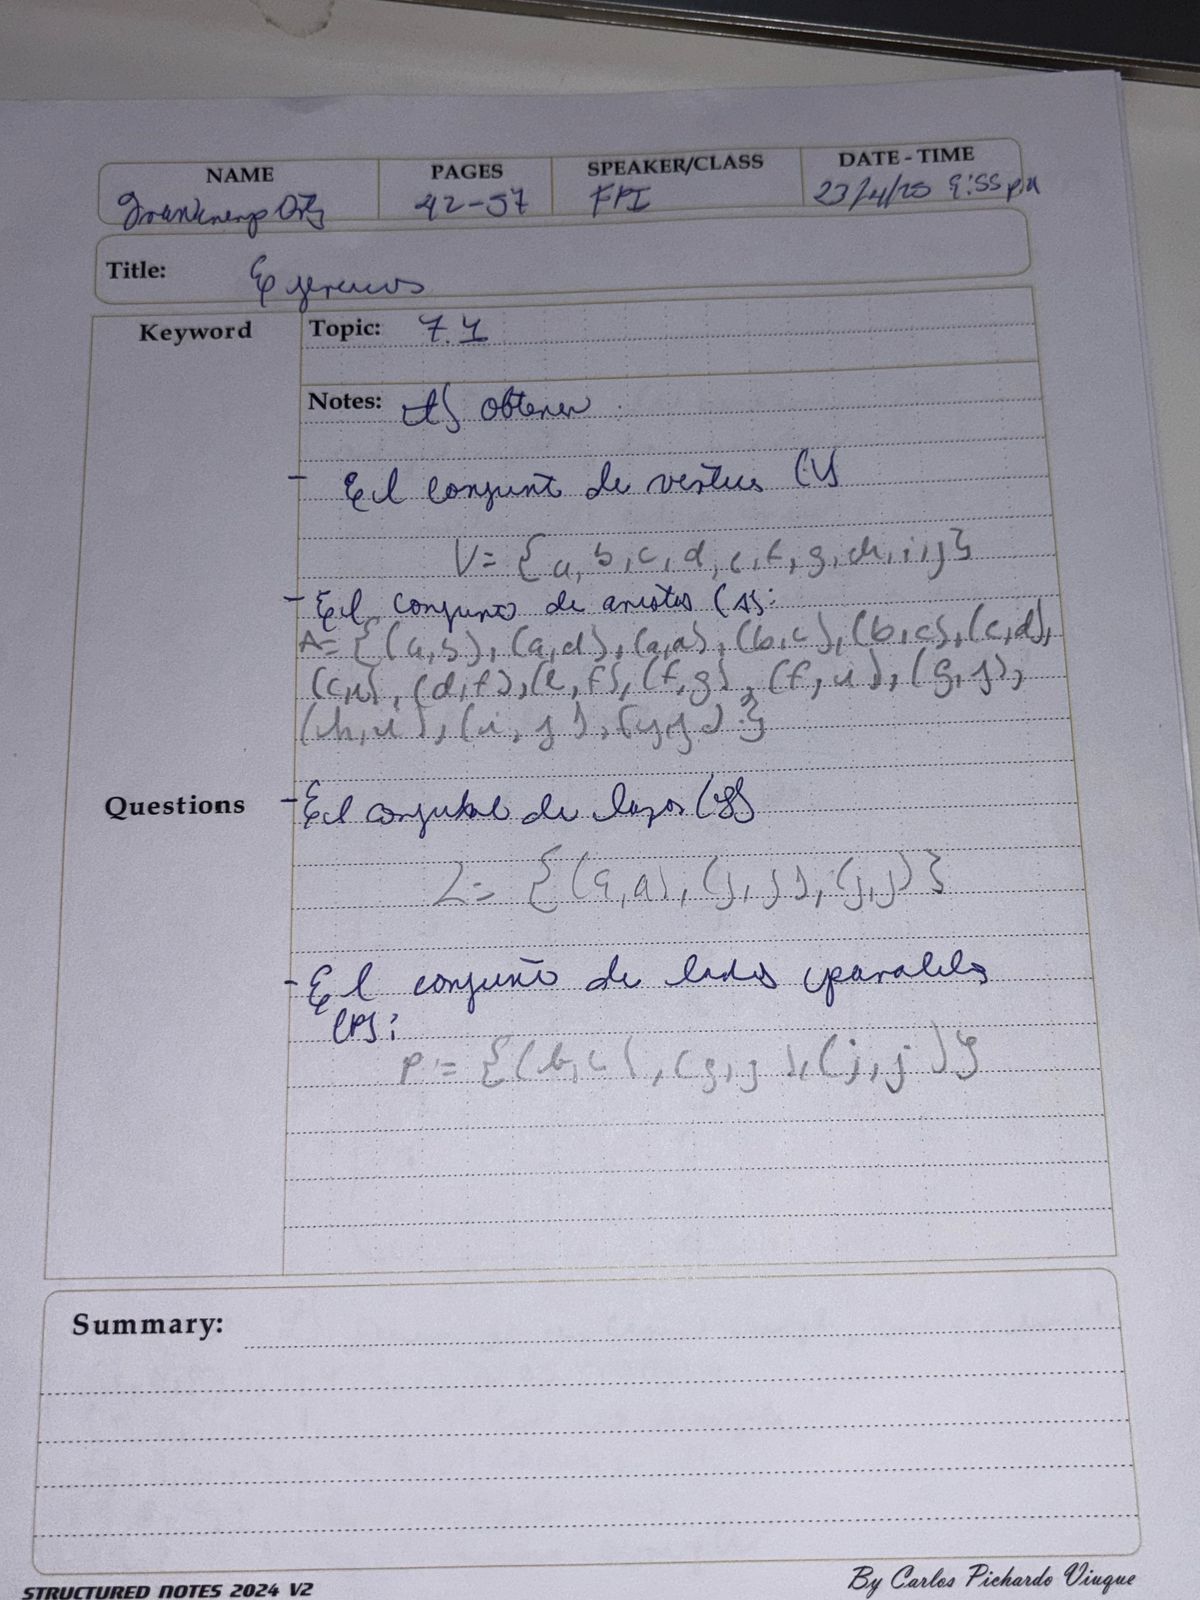 NAME PAGES SPEAKER/CLASS DATE - TIME
42-57 FPI 23/4/25 9:55 p.m
Title: Ejercicios
Keyword Topic: 7.1
Notes: A) obtener
- El conjunto de vertices (V)
V= {a, b, c, d, e, f, g, h, i, j}
- El conjunto de aristas (A):
A= {(a,b), (a,d), (a,a), (b,c), (b,c), (c,d),
(d,f), (e,f), (f,g), (g,j),
Questions - El de lazos
L= {(a,a), (j,j), (j,j)}
- El conjunto de lados paralelos
(P):
P = {(b,c), (j,j)}
Summary:
STRUCTURED NOTES 2024 V2 By Carlos Pichardo Viuque